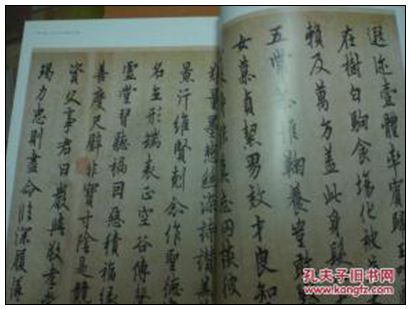 遐迩壹體
在樹白駒食場化被
賴及萬方蓋此身髮
五常恭惟鞠養豈敢
女慕貞絜男效才良知
罔談彼
難量墨悲絲染詩讚羔
景行維賢剋念作聖德
名立形端表正空谷傳聲
虛堂習聽禍因惡積福緣
善慶尺璧非寶寸陰是競
資父事君曰嚴與敬孝當
竭力忠則盡命臨深履薄
孔夫子旧书网
www.kongfz.com